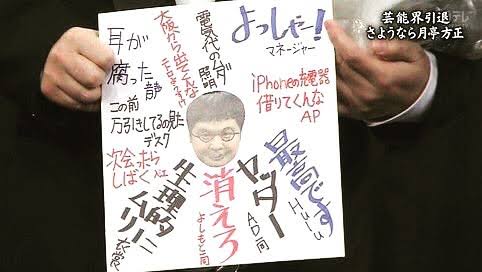 芸能界引退
さようなら月亭方正
よっしゃー!
マネージャー
電気代のムダ
照明
大阪から出てくんな
耳が
腐った
音声
この前
万引きしてるの見た
デスク
次会ったら
しばく
生理的に
ムリ
衣裳
消えろ
よしもと一同
ヤッター
AD一同
最高です
Hulu
iPhoneの充電器
借りてくんな
AP